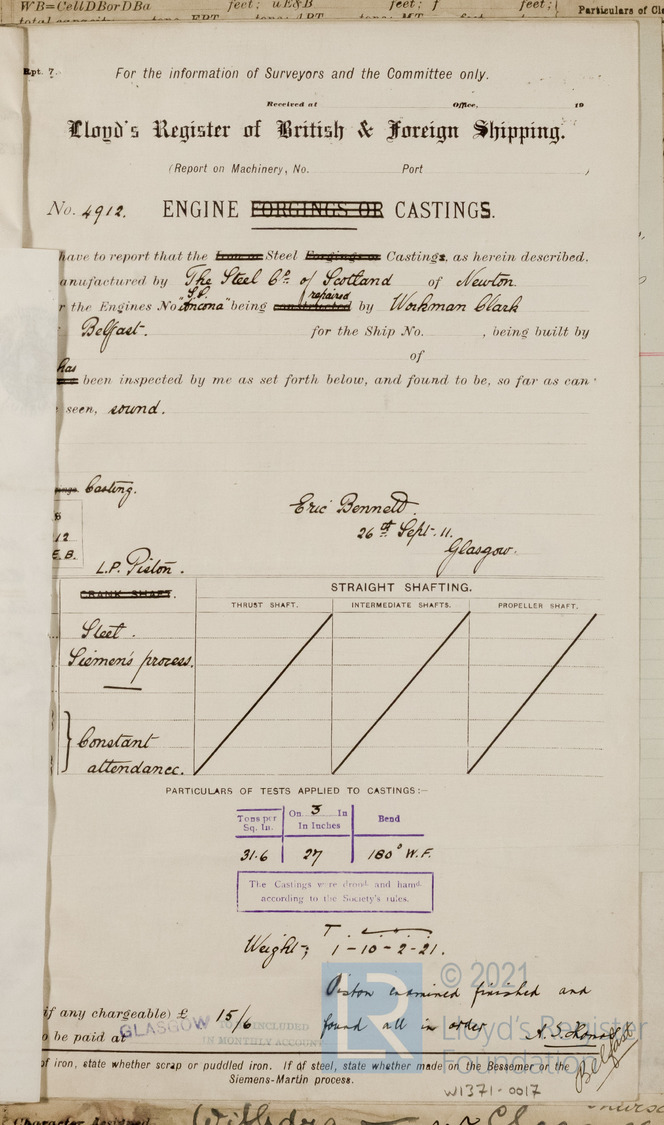 WB=CellDBorDBa feet; uE&B feet; f feet;
Particulars of Cle
Rpt. 7.
For the information of Surveyors and the Committee only.
Received at Office, 19
Lloyd's Register of British & Foreign Shipping.
(Report on Machinery, No. Port
No. 4912. ENGINE FORGINGS OR CASTINGS.
have to report that the Iron or Steel Forgings or Castings, as herein described,
anufactured by The Steel Co. of Scotland of Newton
r the Engines No. S.S. "Ancona" being constructed repaired by Workman Clark
Belfast. for the Ship No. , being built by
of
has been inspected by me as set forth below, and found to be, so far as can
seen, sound.
Casting.
Eric Bennett.
26th Sept. 11.
Glasgow.
8
12
E.B.
L.P. Piston.
CRANK SHAFT.
STRAIGHT SHAFTING.
THRUST SHAFT. INTERMEDIATE SHAFTS. PROPELLER SHAFT.
Steel.
Siemen's process.
Constant
attendance.
PARTICULARS OF TESTS APPLIED TO CASTINGS:—
Tons per Sq. In. On 3 In In Inches Bend
31.6 27 180° W.F.
The Castings were drop and hamd
according to the Society's rules.
Weight; T 1-10-2-21.
Piston examined finished and
found all in order
Belfast
if any chargeable) £ 15/6
o be paid at GLASGOW TO INCLUDED
IN MONTHLY ACCOUNT
of iron, state whether scrap or puddled iron. If of steel, state whether made on the Bessemer or the
Siemens-Martin process.
© 2021
LR
Lloyd's Register
Foundation
W1371-0017
Character Assigned